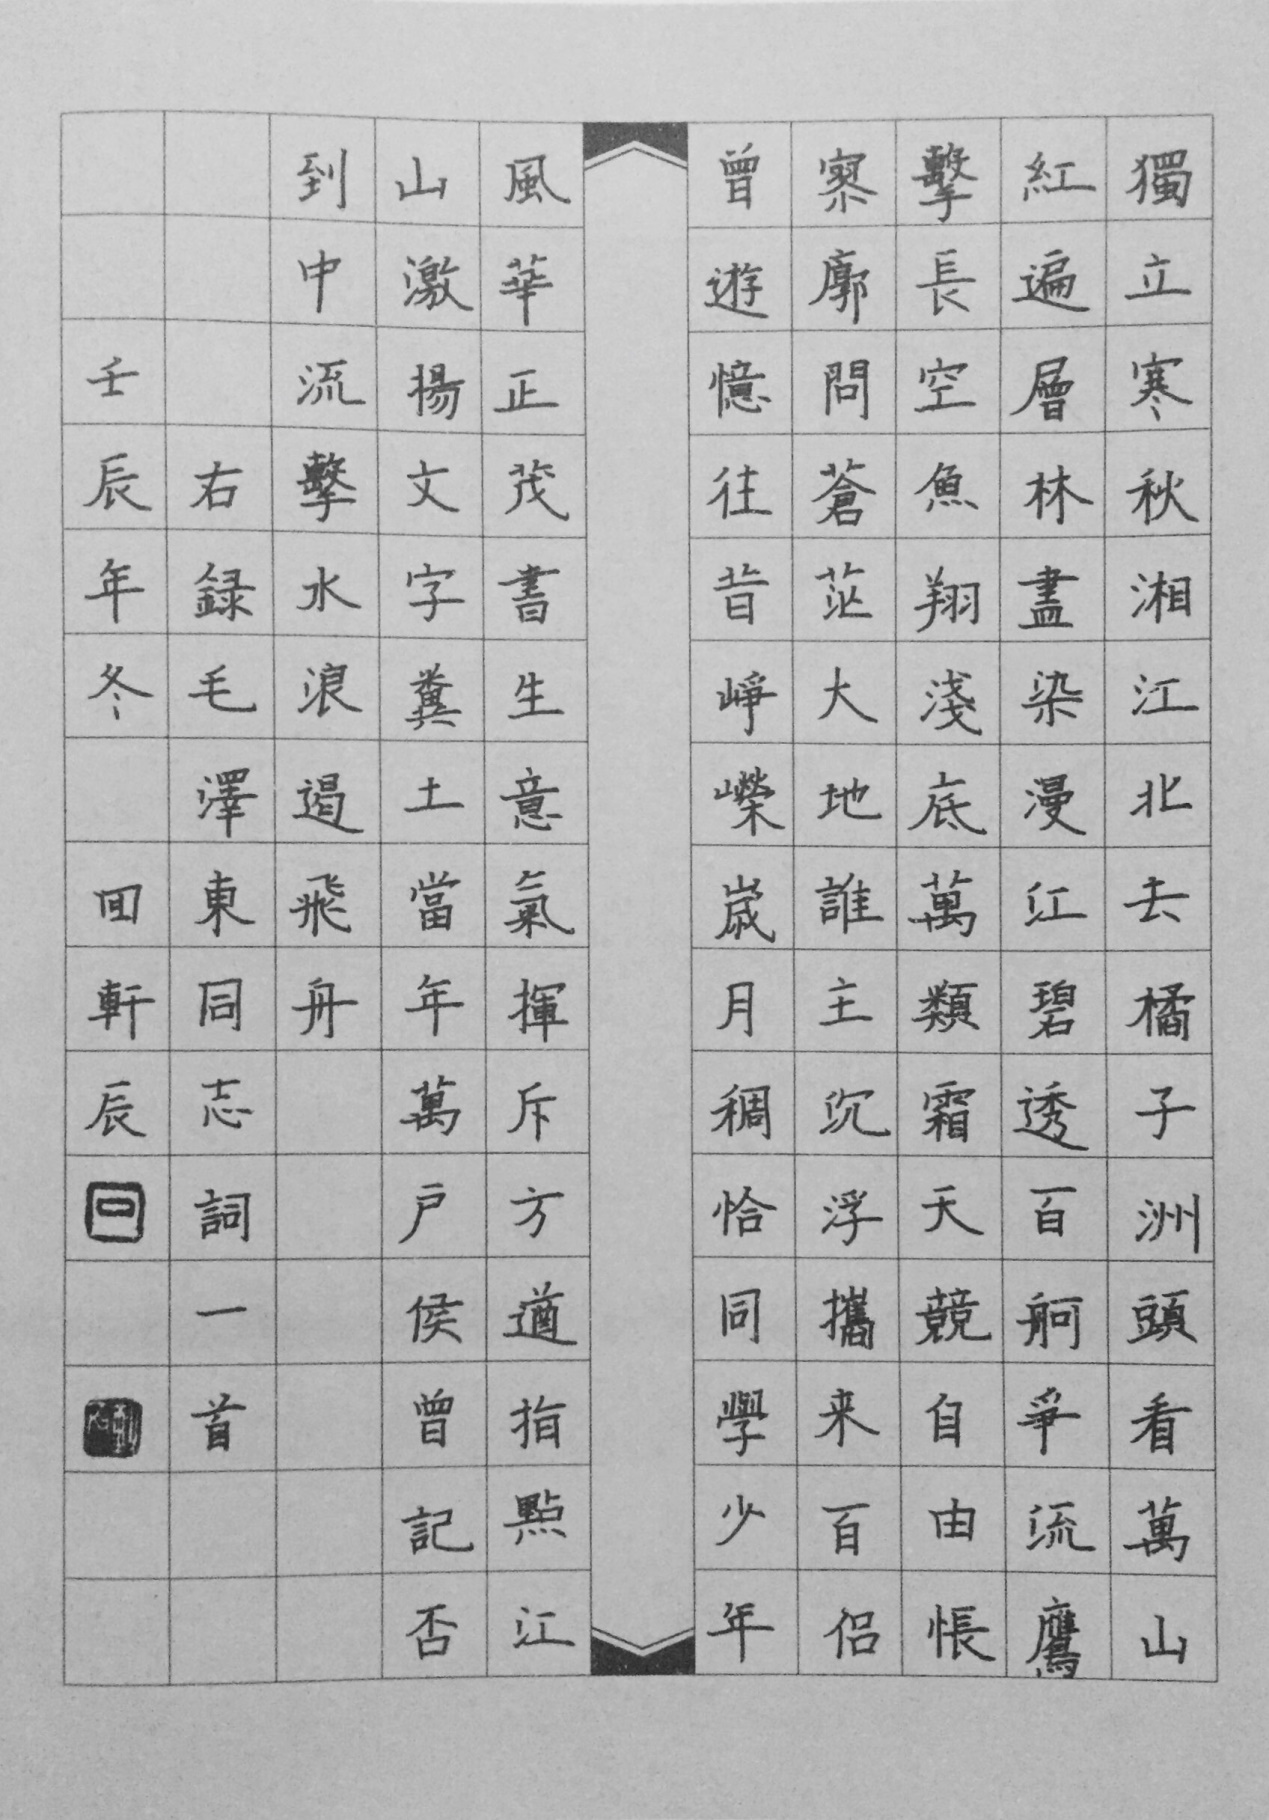 獨立寒秋湘江北去橘子洲頭看萬山
紅遍層林盡染漫江碧透百舸爭流鷹
擊長空魚翔淺底萬類霜天競自由悵
寥廓問蒼茫大地誰主沉浮攜来百侣
曾遊憶往昔崢嶸崴月稠恰同學少年
風華正茂書生意氣揮斥方遒指點江
山激揚文字糞土當年萬户侯曾記否
到中流擊水浪遏飛舟
右録毛澤東同志詞一首
壬辰年冬 回軒辰